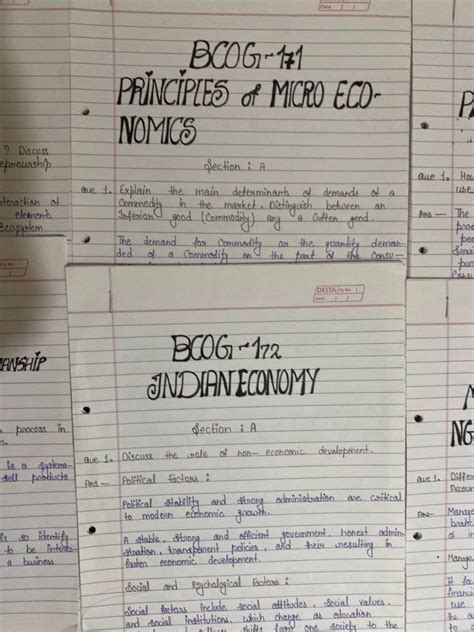 BCOG-171
PRINCIPLES of MICRO ECO-
NOMICS
Section : A
que 1. Explain the main determinants of demands of a
Commodity in the market. Distinguish between an
Inferior good (Commodity) any a Giffen good.
The demand for Commodity or the quantity deman-
ded of a Commodity on the part of the Consu-
? Discuss
epreneurship
nteraction of
element
Ecosystem
que 1. Ho
use
Ans — The
DELTA Pg No.
Date
BCOG-172
INDIAN ECONOMY
Section : A
que 1. Discuss the role of non- economic development.
Ans — Political Factors :
Political stability and strong administration are critical
to modern economic growth.
A stable, strong and efficient government, honest admin-
istration, transparent policies, and their resulting in
fasten economic development.
Social and Psychological Factors :
Social factors include social attitudes, social values,
and social institutions, which change as education
shift from one society to the
ANSHIP
process in
is a systema-
sell products
is so identify
to be interes-
a business
M
NG-
que 1. Differ
Accoun
Ans- Manage
• Manage